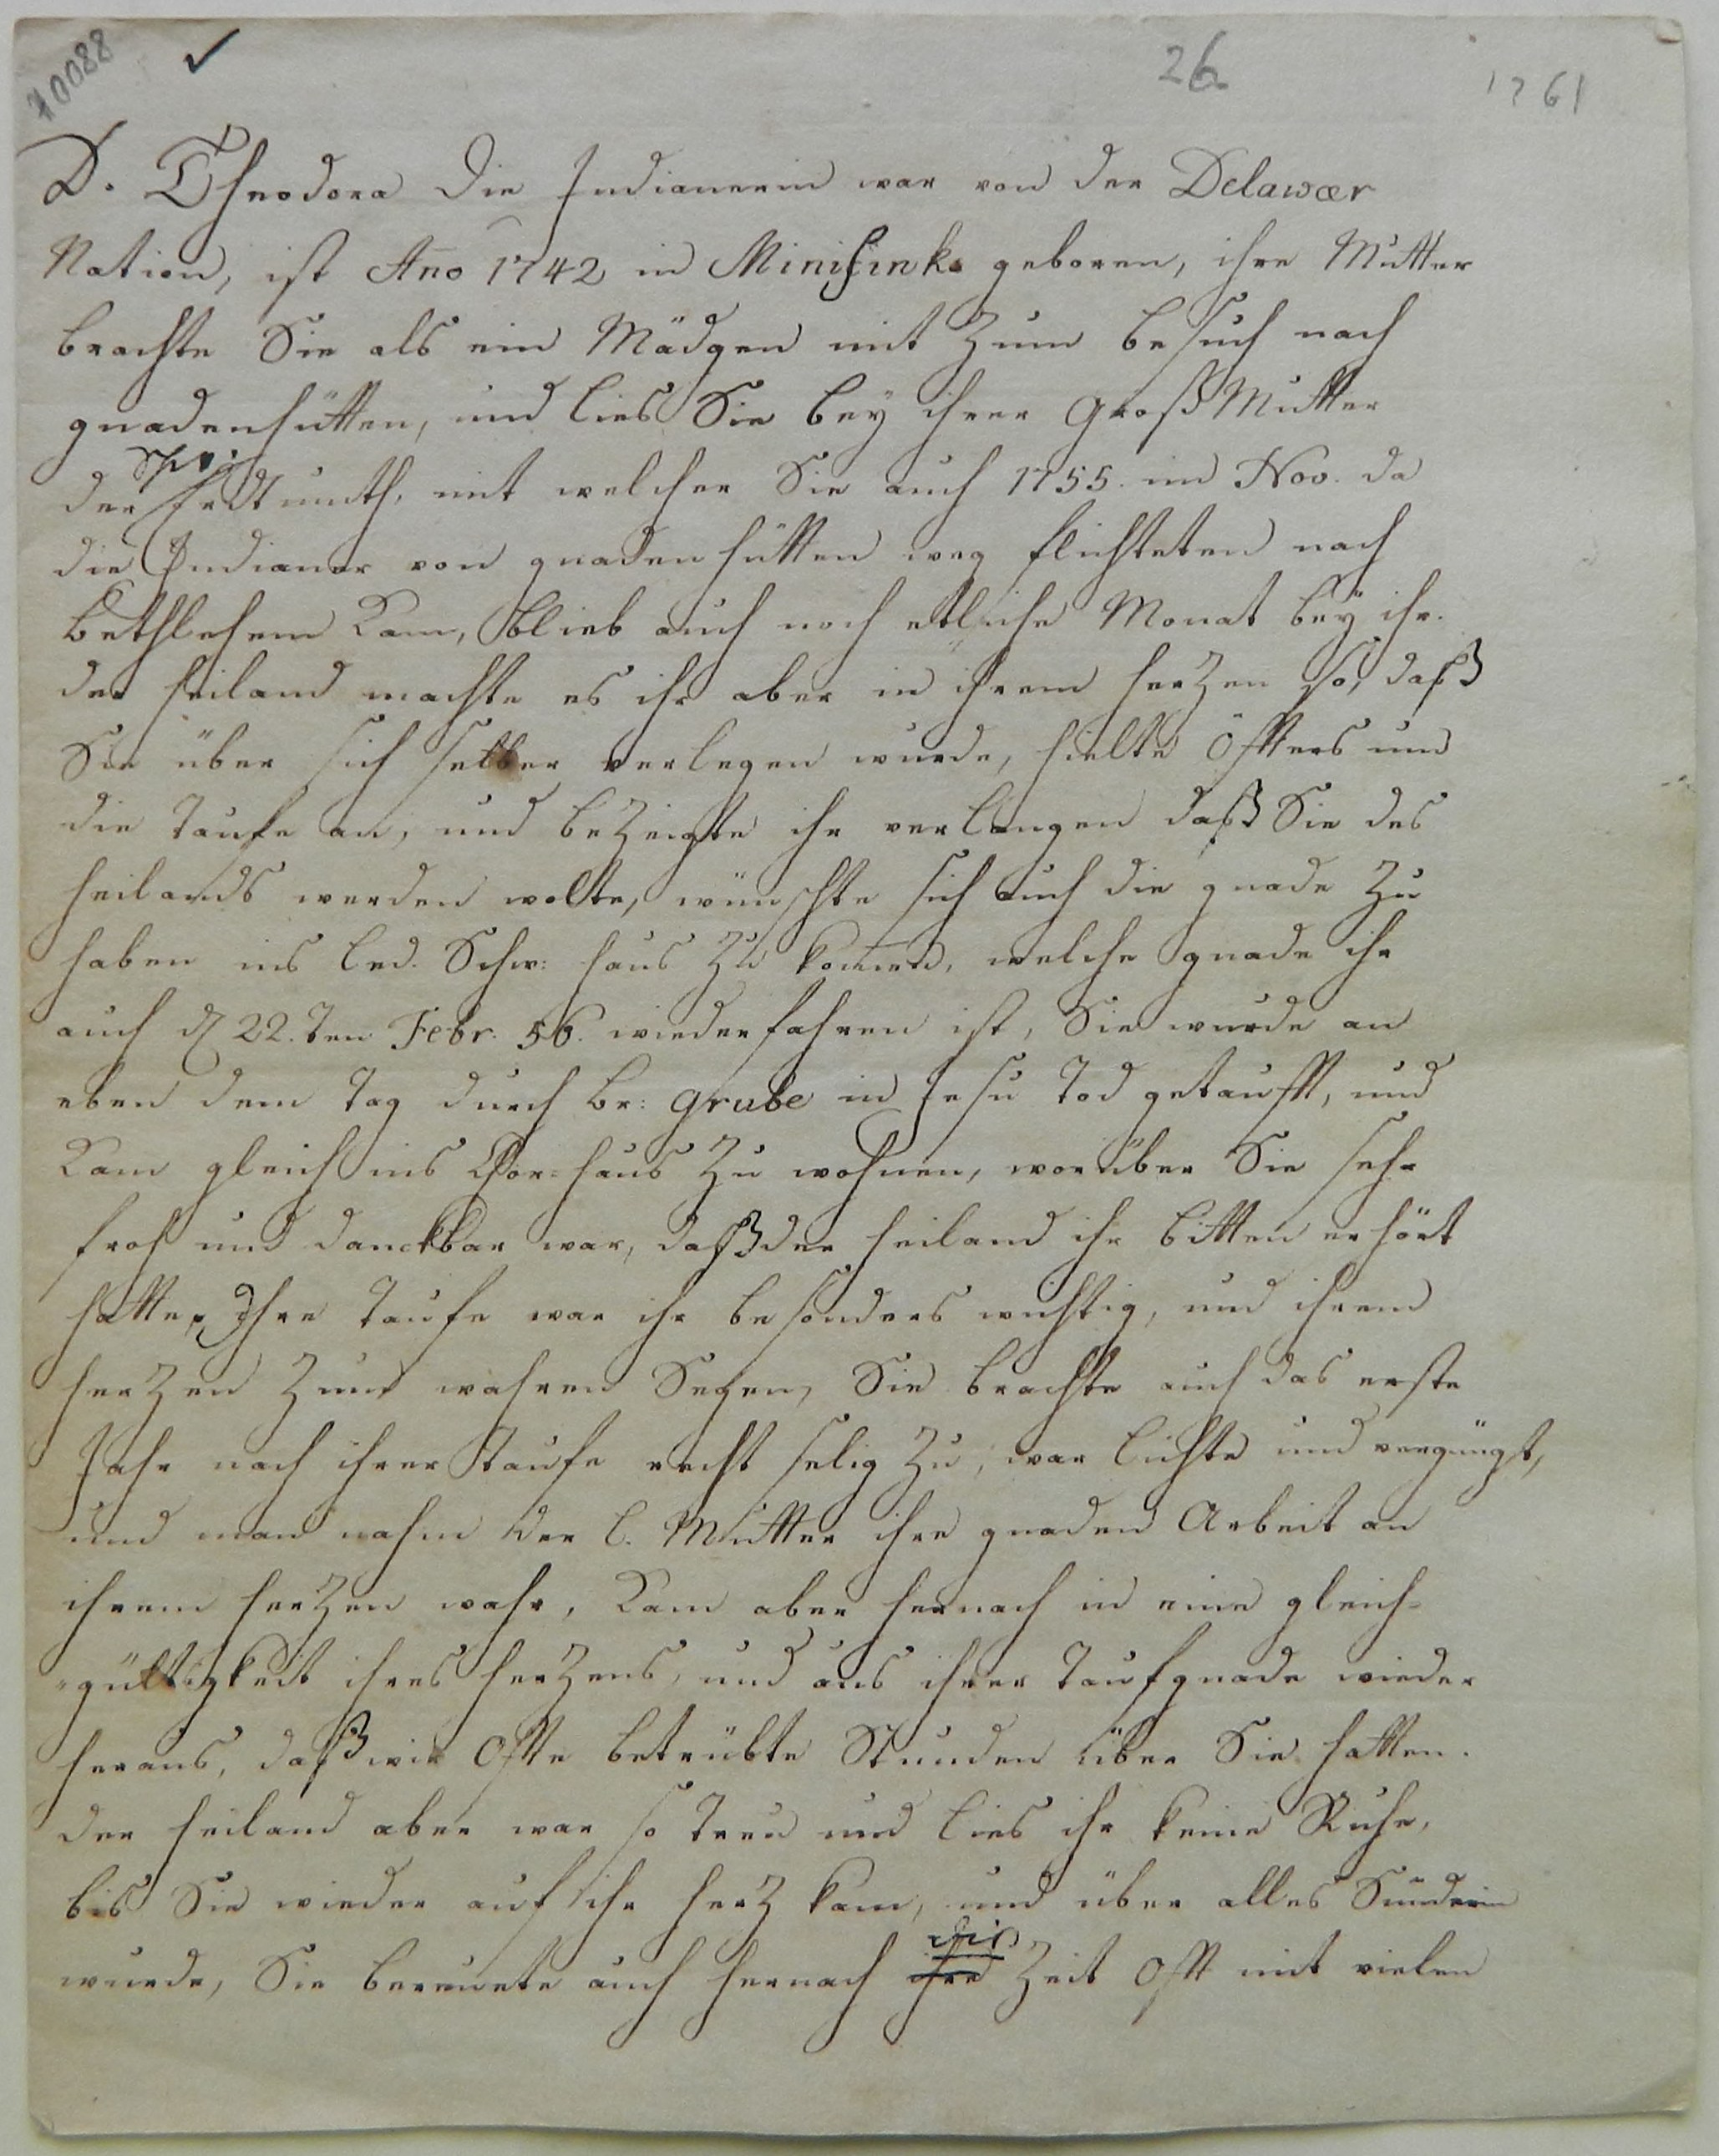 70088 ✓ 26 1761
D. Theodora die Indianerin war von der Delawær
Nation, ist Año 1742 in Minisinks geboren, ihre Mutter
brachte Sie als ein Mädgen mit zum besuch nach
gnadenhütten, und lies Sie bey ihrer Groß Mutter
der Erdtmuth, mit welcher Sie auch 1755. im Nov. da
die Indianer von gnadenhütten weg flichteten nach
Bethlehem kam, blieb auch noch etliche Monat bey ihr.
der heiland machte es ihr aber in ihrem herzen so, daß
Sie über sich selber verlegen wurde, hielte öffters um
die Taufe an, und bezeigte ihr verlangen daß Sie des
heilands werden wolte, wünschte sich auch die gnade zu
haben ins led. Schw: haus zu kom̄en, welche gnade ihr
auch d 22.ten Febr. 56. wiederfahren ist, Sie wurde an
eben dem Tag durch br: Grube in Jesu Tod getaufft, und
kam gleich ins Chor-haus zu wohnen, worüber Sie sehr
froh und danckbar war, daß der heiland ihr bitten erhört
hatte, Ihre Taufe war ihr besonders wichtig, und ihrem
herzen zum wahren Segen, Sie brachte auch das erste
Jahr nach ihrer Taufe recht selig zu, war lichte und vergnügt,
und man nahm der l. Mutter ihre gnaden Arbeit an
ihrem herzen wahr, kam aber hernach in eine gleich-
-gültigkeit ihres herzens, und aus ihrer Taufgnade wieder
heraus, daß wir offte betrübte Stunden über Sie hatten.
der heiland aber war so treu und lies ihr keine Ruhe,
bis Sie wieder auf ihr herz kam, und über alles Sünderin
die
wurde, Sie bereuete auch hernach ihre Zeit offt mit vielen